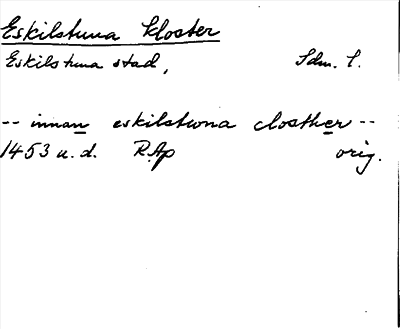 Eskilstuna kloster
Eskilstuna stad, Sdm. l.
-- innan eskilstwna closther --
1453 u.d. RAp orig.